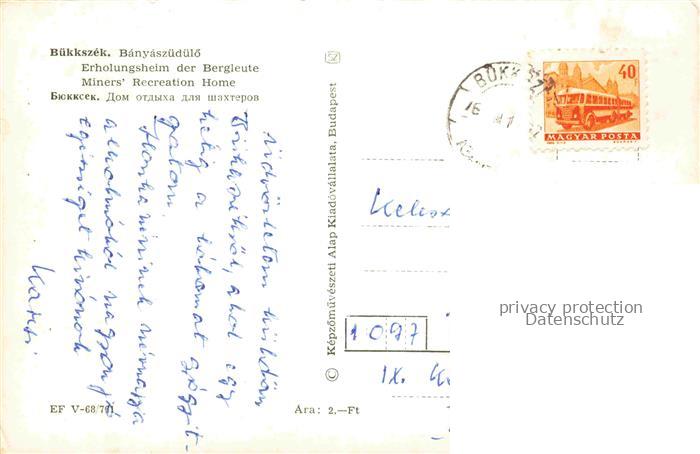 Bükkszék. Bányászüdülő
Erholungsheim der Bergleute
Miners' Recreation Home
Бюкксек. Дом отдыха для шахтеров
Üdvözletem küldöm
Bükkszékről, ahol egy
hétig a lábamat gyógyít-
gatom.
névnapja
alkalmából nagyon jó
egészséget kívánok
Kati
EF V-68/701
Ára: 2,—Ft
© Képzőművészeti Alap Kiadóvállalata, Budapest
BÜKKSZ
76
40
MAGYAR POSTA
1097
IX.
privacy protection
Datenschutz